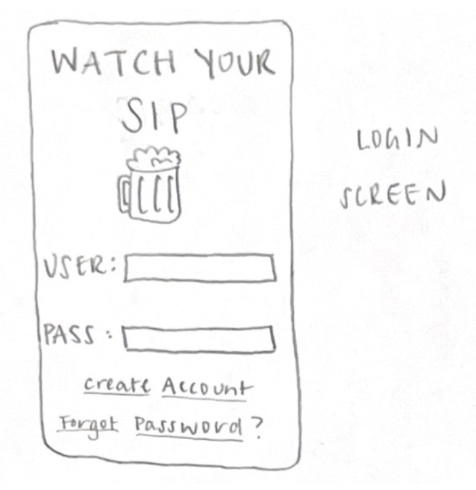 WATCH YOUR
SIP
USER:
PASS:
create Account
Forgot Password?
LOGIN
SCREEN